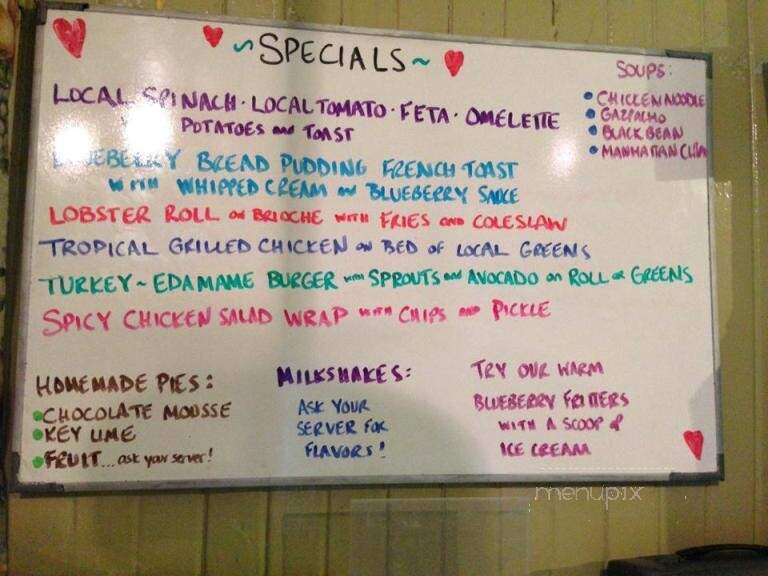 ~SPECIALS~
LOCAL SPINACH · LOCAL TOMATO · FETA · OMELETTE
POTATOES and TOAST
BLUEBERRY BREAD PUDDING FRENCH TOAST
WITH WHIPPED CREAM and BLUEBERRY SAUCE
LOBSTER ROLL on BRIOCHE WITH FRIES and COLESLAW
TROPICAL GRILLED CHICKEN on BED OF LOCAL GREENS
TURKEY~EDAMAME BURGER with SPROUTS and AVOCADO on ROLL or GREENS
SPICY CHICKEN SALAD WRAP WITH CHIPS and PICKLE
SOUPS:
• CHICKEN NOODLE
• GAZPACHO
• BLACK BEAN
• MANHATTAN CLAM
HOMEMADE PIES:
• CHOCOLATE MOUSSE
• KEY LIME
• FRUIT... ask your server!
MILKSHAKES:
ASK YOUR
SERVER FOR
FLAVORS!
TRY OUR WARM
BLUEBERRY FRITTERS
WITH A SCOOP of
ICE CREAM
menupix